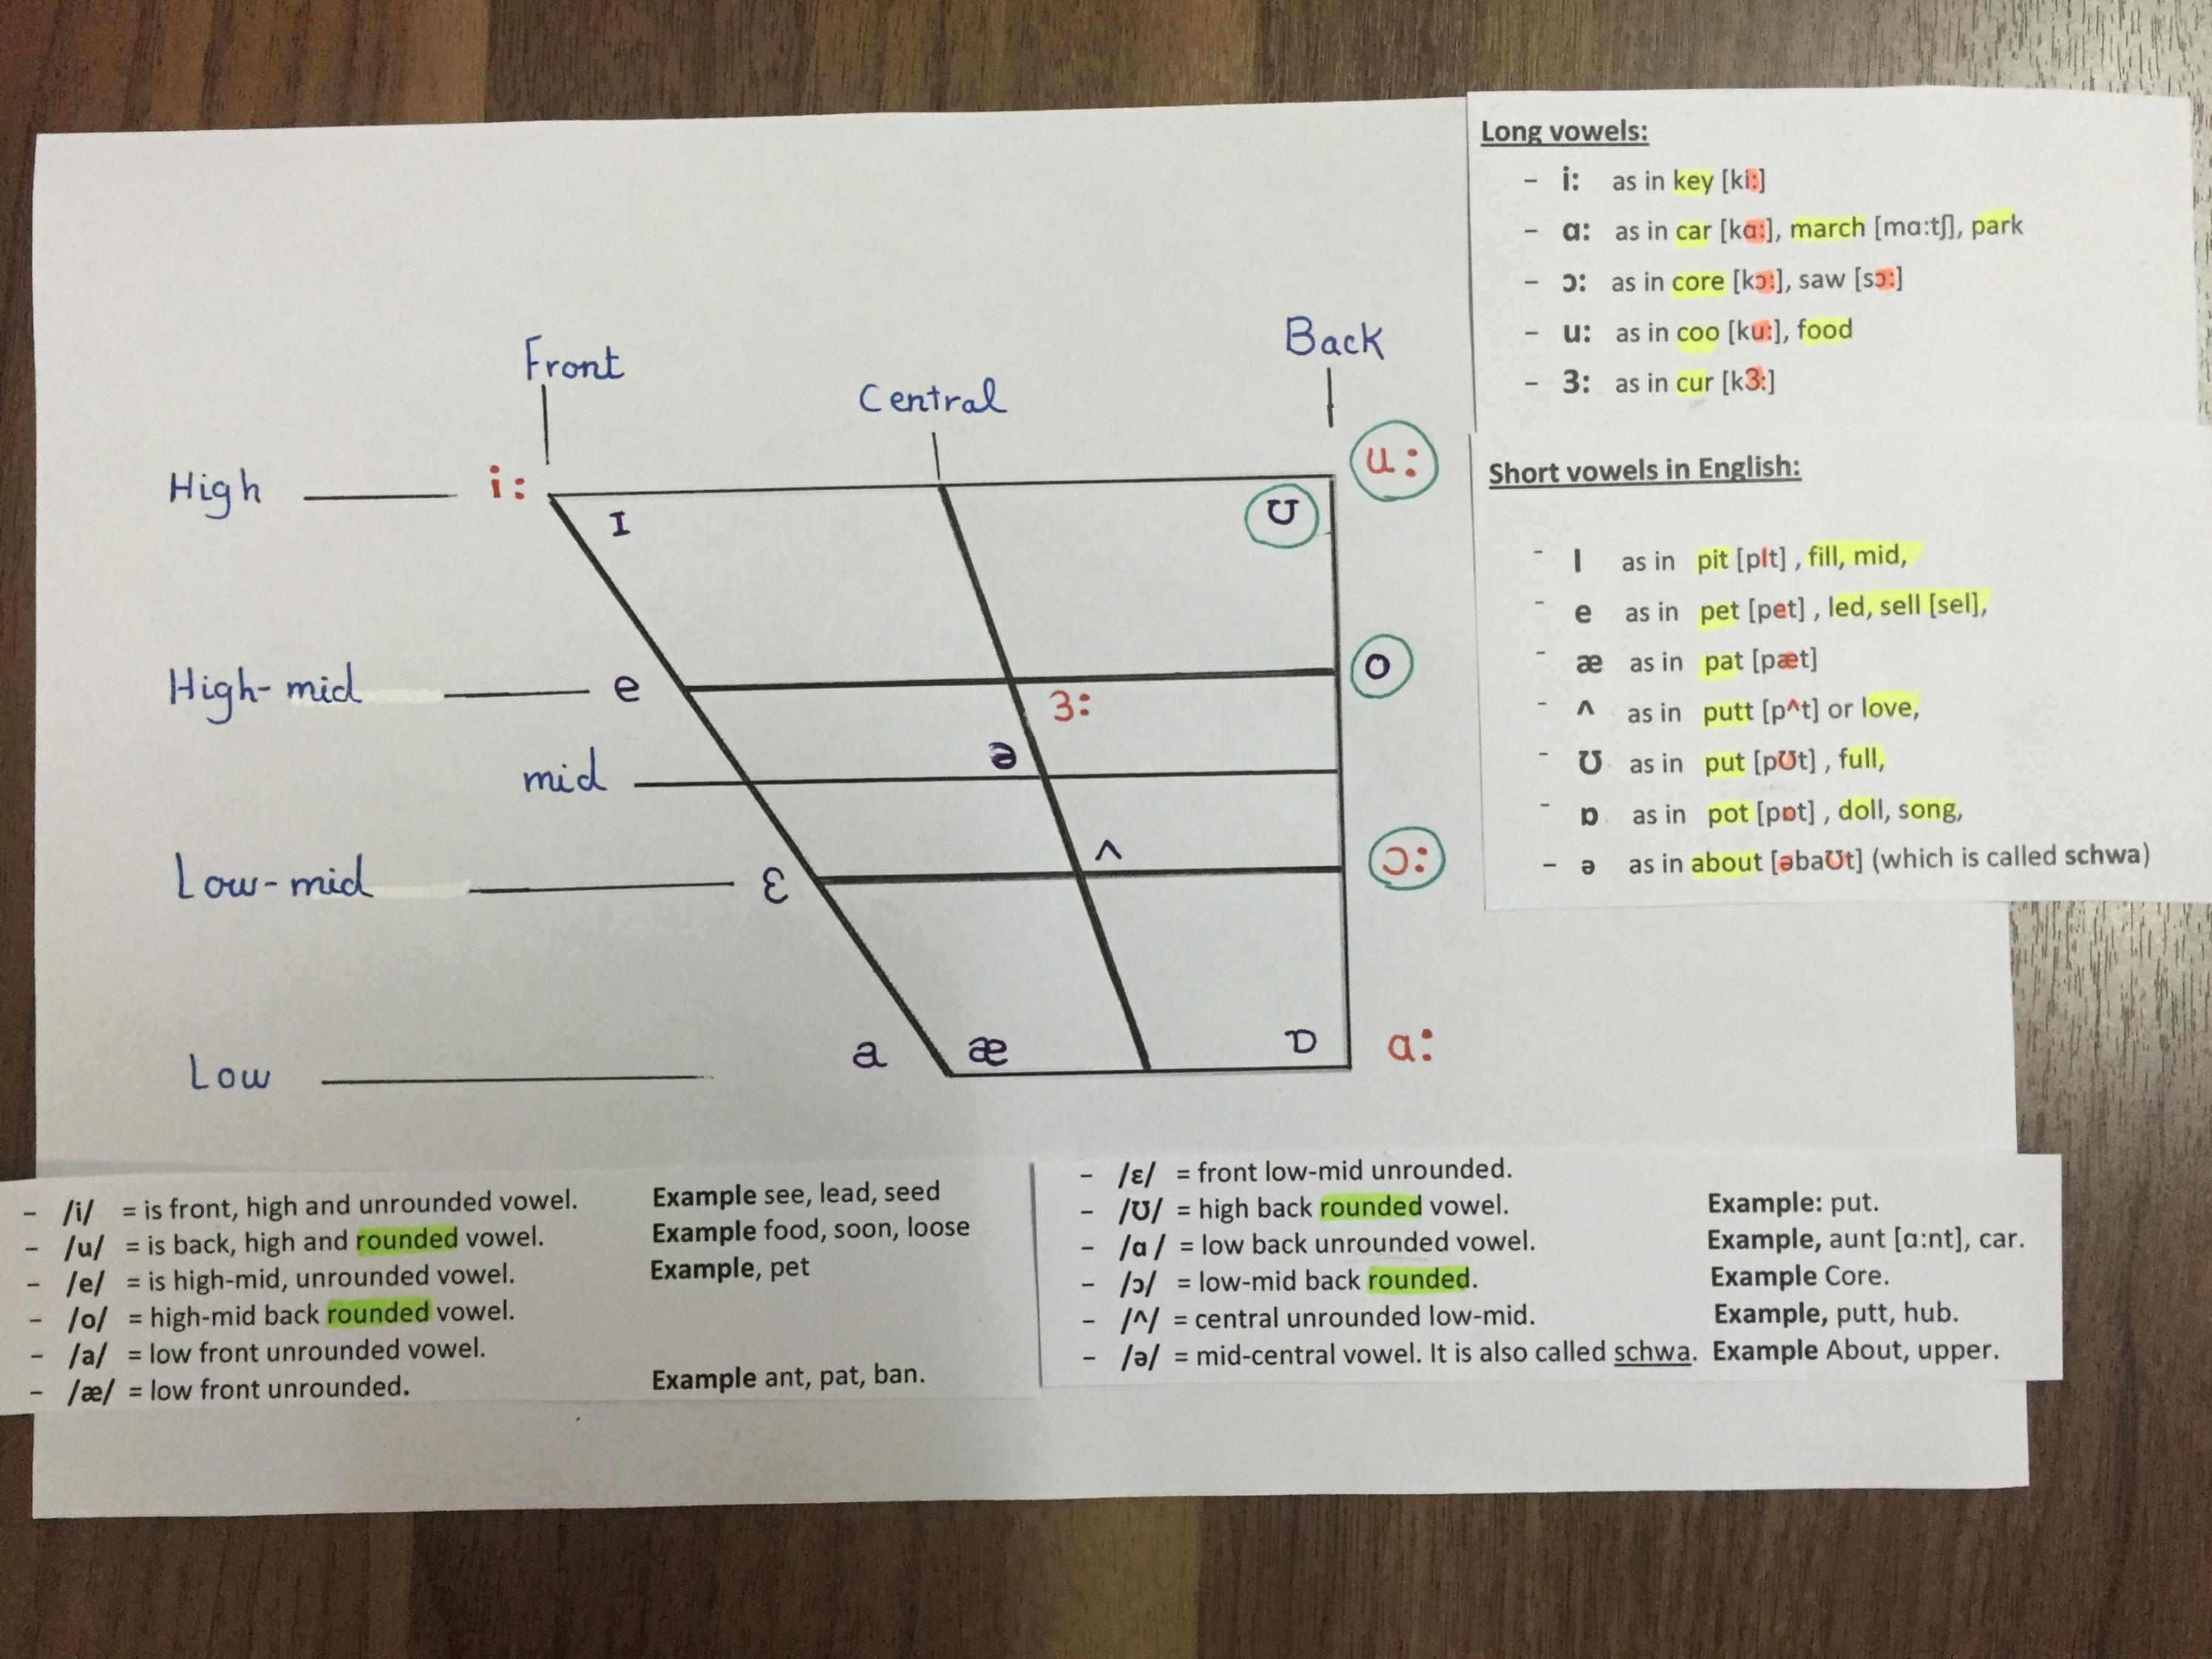 Long vowels:
– i: as in key [ki:]
– ɑ: as in car [kɑ:], march [mɑ:tʃ], park
– ɔ: as in core [kɔ:], saw [sɔ:]
– u: as in coo [ku:], food
– 3: as in cur [k3:]
Short vowels in English:
- I as in pit [pIt] , fill, mid,
- e as in pet [pet] , led, sell [sel],
- æ as in pat [pæt]
- ^ as in putt [p^t] or love,
- Ʊ as in put [pƱt] , full,
- ɒ as in pot [pɒt] , doll, song,
– ə as in about [əbaƱt] (which is called schwa)
Front
Central
Back
High i: u:
I Ʊ
High-mid e o
3:
mid ə
Low-mid ɛ ^ ɔ:
Low a æ ɒ ɑ:
– /i/ = is front, high and unrounded vowel. Example see, lead, seed
– /u/ = is back, high and rounded vowel. Example food, soon, loose
– /e/ = is high-mid, unrounded vowel. Example, pet
– /o/ = high-mid back rounded vowel.
– /a/ = low front unrounded vowel.
– /æ/ = low front unrounded. Example ant, pat, ban.
– /ɛ/ = front low-mid unrounded.
– /Ʊ/ = high back rounded vowel. Example: put.
– /ɑ / = low back unrounded vowel. Example, aunt [ɑ:nt], car.
– /ɔ/ = low-mid back rounded. Example Core.
– /^/ = central unrounded low-mid. Example, putt, hub.
– /ə/ = mid-central vowel. It is also called schwa. Example About, upper.